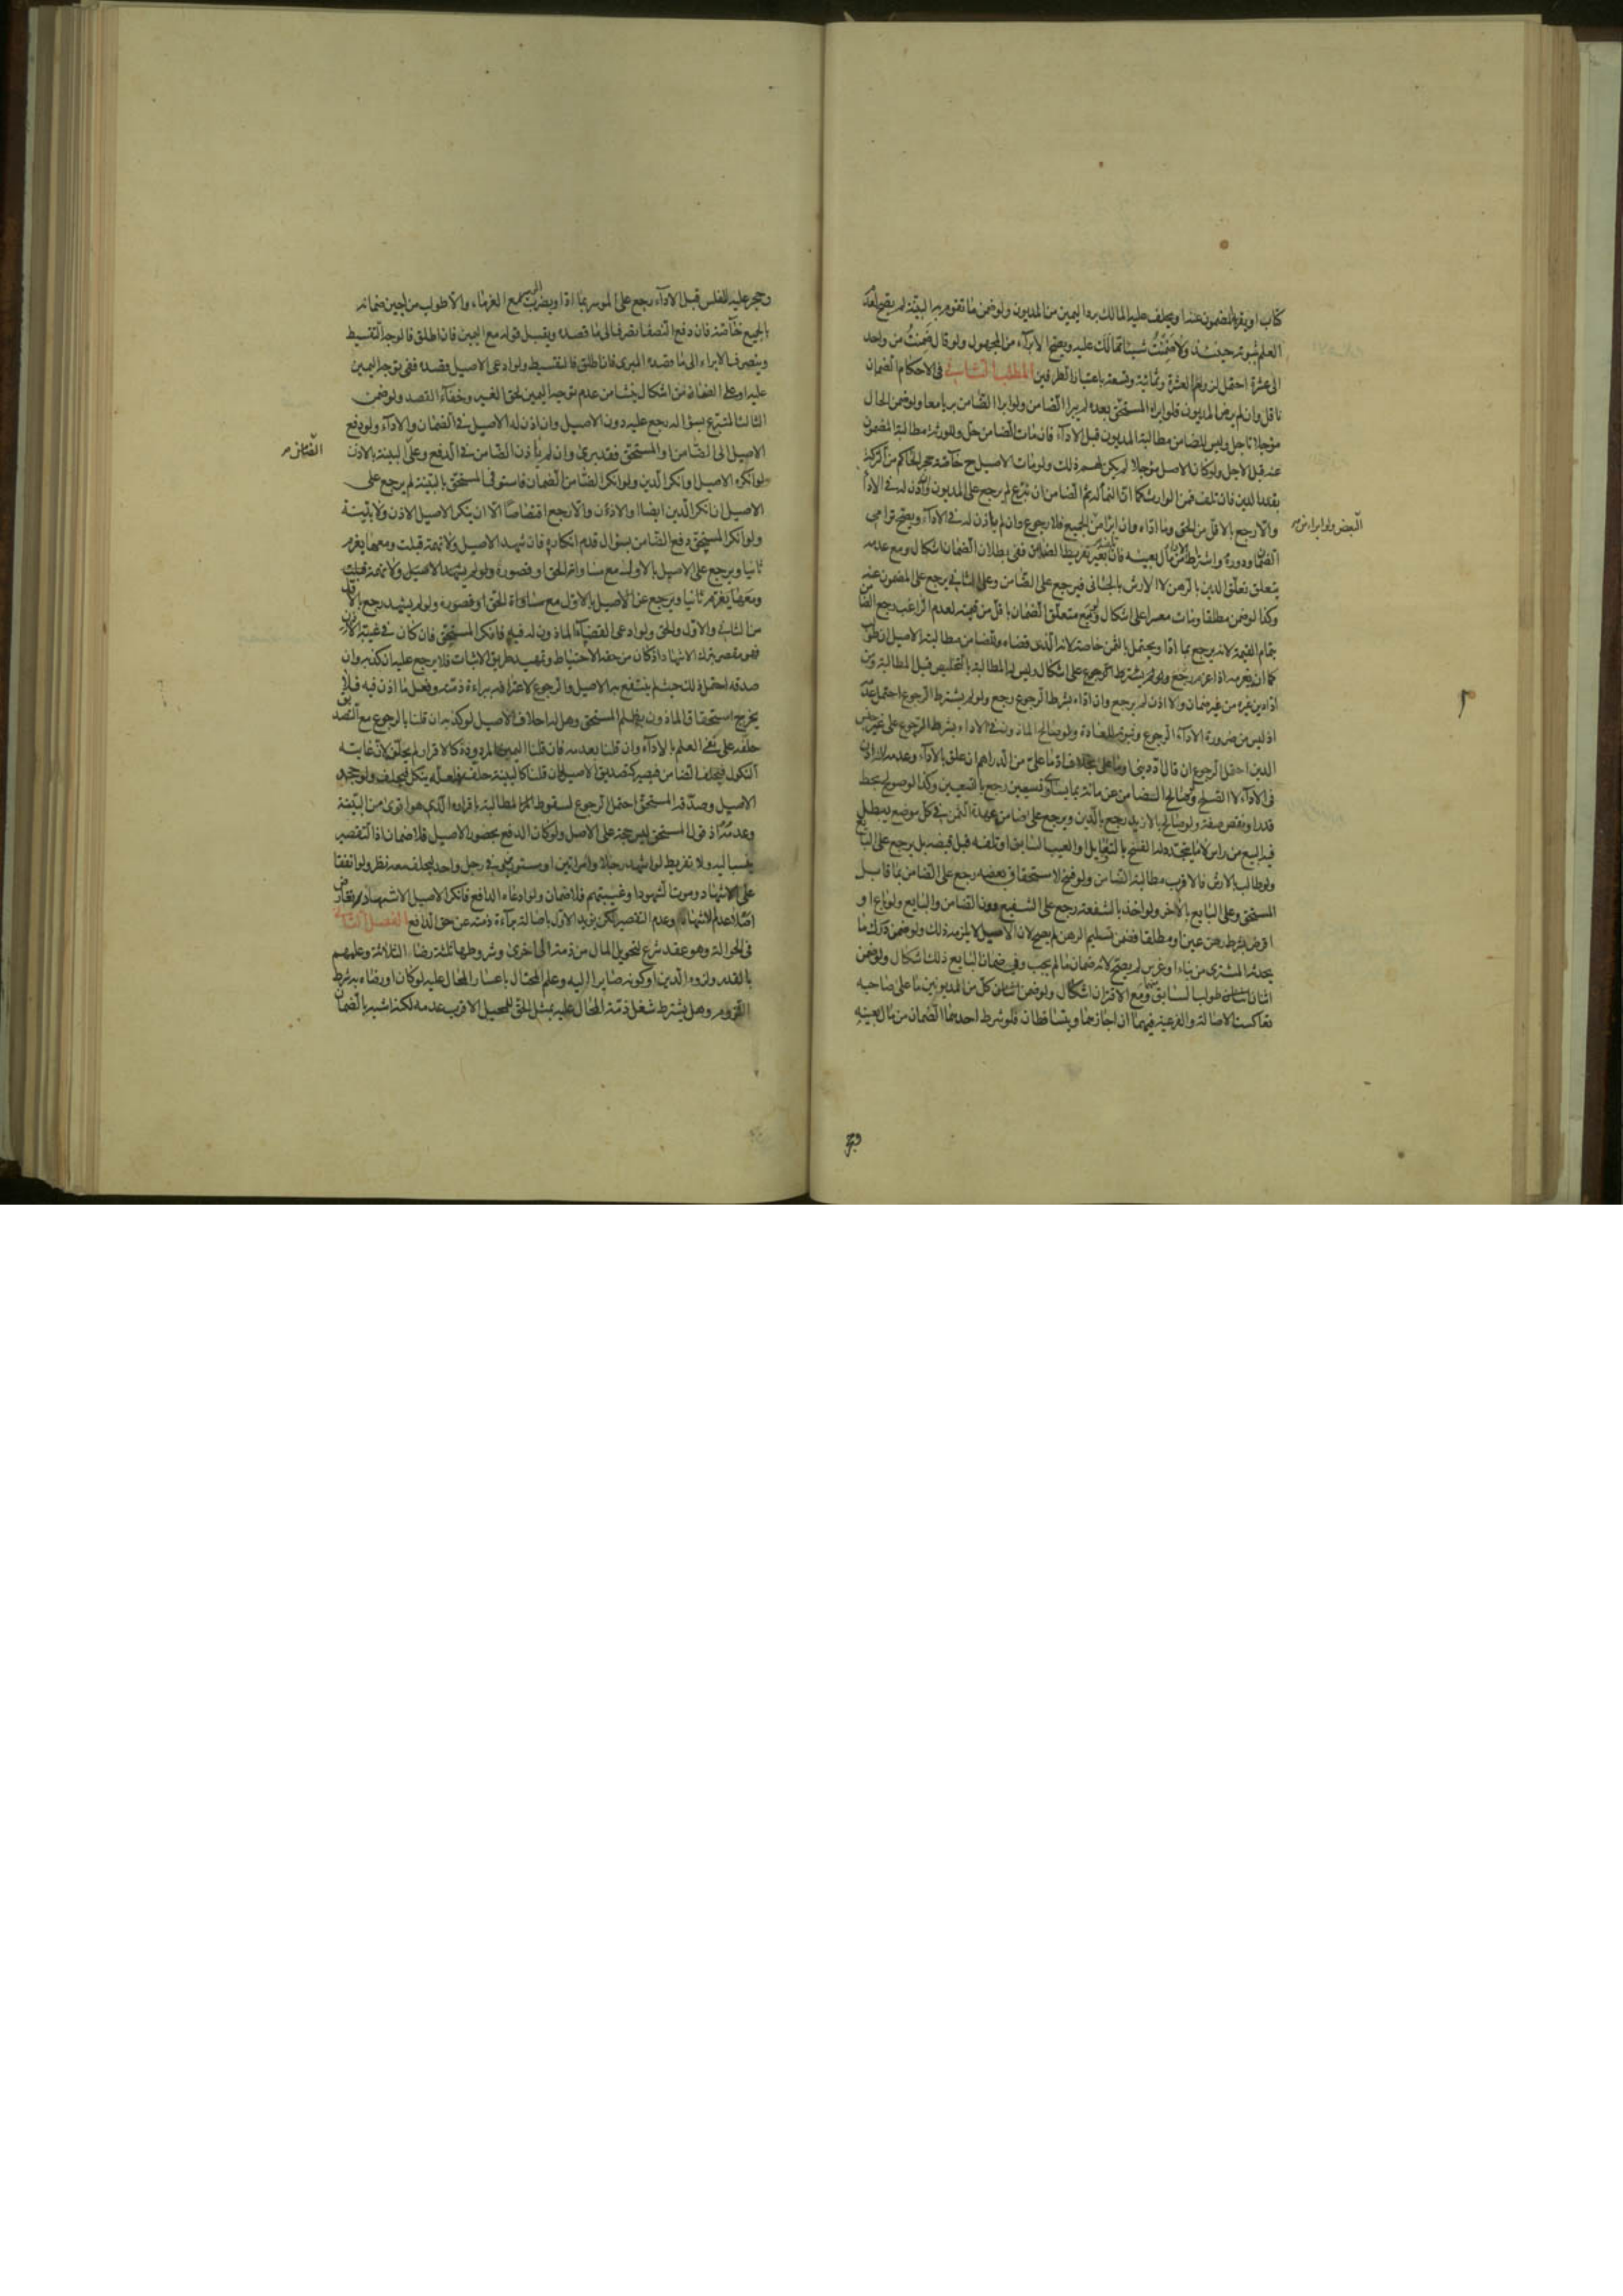 كتاب او يقر به المضمون عنه او يحلف عليه المالك برد اليمين من المديون ولو ضمن ما تقوم به البينة لم يصح لعدم
العلم بثبوته حينئذ ولا ضمنت شيئا مما لك عليه ويصح الابراء من المجهول ولو قال ضمنت من واحد
الى عشرة احتمل لزوم العشرة وثمانية وتسعة باعتبار الطرفين المطلب الثانى فى الاحكام الضمان
ناقل وان لم يرض المديون فلو ابراه المستحق بعده لم يبرا الضامن ولو ابرا الضامن بريا معا ولو ضمن الحال
مؤجلا تاجل وليس للضامن مطالبة المديون قبل الاداء فان مات الضامن حل ولورثته مطالبة المضمون
عنه قبل الاجل ولو كان الاصل مؤجلا لم يكن لهم ذلك ولو مات الاصيل ح خاصة وحجر الحاكم من التركة
بقدر الدين فان تلف فمن الوارث كما ان النماء له ثم الضامن ان تبرع لم يرجع على المديون وان اذن له فى الاداء
والا رجع بالاقل من الحق وما اداه وان ابرا من الجميع فلا رجوع وان لم ياذن له فى الاداء ويصح ترامى
البعض ولو ابرا من
الضمان ودوره واشتراط من مال بعينه فان تلف بغير تفريط الضامن ففى بطلان الضمان اشكال ومع عدمه
يتعلق به تعلق الدين بالرهن لا الارش بالجانى فيرجع على الضامن وعلى الثانى يرجع على المضمون عنه
وكذا لو ضمن مطلقا ومات معسرا على اشكال وبيع متعلق الضمان باقل من قيمته لعدم الراغب رجع الضامن
بتمام القيمة لانه يرجع بما ادا ويحتمل بالثمن خاصة لانه الذى قضاه وللضامن مطالبة الاصيل ان طولب
كما ان يغرمه اذا غرم رجع ولو لم يشترط الرجوع على اشكال وليس له المطالبة بالتخليص قبل المطالبة ومن
ادى دين غيره من غير ضمان ولا اذن لم يرجع وان اداه بشرط الرجوع رجع ولو لم يشترط الرجوع احتمل عدمه
اذ ليس من ضرورة الاداء الرجوع وثبوته للعادة ولو صالح الماذون له فى الاداء بشرط الرجوع على غير جنس
الدين احتمل الرجوع ان قال اد دينى او ما على بخلاف اد ما على من الدراهم ان علق بالاداء وعدمه لانه اذن
فى الاداء لا الصلح ولو صالح الضامن عن مائة بما يساوى تسعين رجع بالتسعين وكذا لو صولح بحط
قدر او نقص صفة ولو صالح بالازيد رجع بالدين ويرجع على ضامن عهدة الثمن فى كل موضع يبطل
فيه البيع من راس لا ما يتجدد له الفسخ بالتقايل او العيب السابق او تلفه قبل قبضه بل يرجع على البايع
ولو طالب بالارش فالاقرب مطالبة الضامن ولو فسخ لاستحقاق بعضه رجع على الضامن بما قابل
المستحق وعلى البايع بالاخر ولو اخذ بالشفعة رجع على الشفيع دون الضامن والبايع ولو باع او
اقرض بشرط رهن عين او مطلقا فضمن تسليم الرهن لم يصح لان الاصيل لا يلزمه ذلك ولو ضمن درك ما
يحدثه المشترى من بناء او غرس لم يصح لانه ضمان ما لم يجب وفى ضمان البايع ذلك اشكال ولو ضمن
اثنان طولب السابق ومع الاقتران اشكال ولو ضمن كل من المديونين ما على صاحبه
تعاكست الاصالة والفرعية فيهما ان اجازهما ويتساقطان فلو شرط احدهما الضمان من مال بعينه
وحجر عليه للفلس قبل الاداء رجع على الموسر بما ادا ويضرب الموسر مع الغرماء ولا طولب من اجيز ضمانه
بالجميع خاصة فان دفع النصف انصرف الى ما قصده ويقبل قوله مع اليمين فان اطلق فالوجه التقسيط
وينصرف الابراء الى ما قصده المبرى فان اطلق فالتقسيط ولو ادعى الاصيل قصده ففى توجه اليمين
عليه او على الضامن اشكال ينشا من عدم توجه اليمين لحق الغير وخفاء القصد ولو ضمن
الثالث المتبرع بسؤاله رجع عليه دون الاصيل وان اذن له الاصيل فى الضمان والاداء ولو دفع
الاصيل الى الضامن او المستحق فقد برئ وان لم ياذن الضامن فى الدفع وعلى البينة بالاذن
الضامن
لو انكره الاصيل وانكر الدين ولو انكر الضامن الضمان فاستوفى المستحق بالبينة لم يرجع على
الاصيل ان انكر الدين ايضا او الاذن والا رجع اقتصاصا الا ان ينكر الاصيل الاذن ولا بينة
ولو انكر المستحق دفع الضامن بسؤال قدم انكاره فان شهد الاصيل ولا تهمة قبلت ومعها يغرم
ثانيا ويرجع على الاصيل بالاول مع مساواته الحق او قصوره ولو لم يشهد الاصيل ولا تهمة قبلت
ومعها يغرم ثانيا ويرجع على الاصيل بالاول مع مساواة الحق او قصوره ولو لم يشهد رجع بالاقل
من الثانى والاول والحق ولو ادعى القضاء الماذون له فيه فانكر المستحق فان كان فى غيبة الاذن
فهو مقصر بترك الاشهاد اذ كان من حقه الاحتياط وتمهيد طريق الاثبات فلا يرجع عليه ان كذبه وان
صدقه احتمل ذلك حيث لم ينتفع به الاصيل والرجوع لاعترافه ببراءة ذمته وفعل ما اذن فيه فلا
يخرج استحقاق الماذون بظلم المستحق وهل له احلاف الاصيل لو كذبه ان قلنا بالرجوع مع التصديق
حلفه على نفى العلم بالاداء وان قلنا بعدمه فان قلنا اليمين المردودة كالاقرار لم يحلف لان غايته
النكول فيحلف الضامن فيصير كتصديق الاصيل وان قلنا كالبينة حلف فلعله ينكل فيحلف ولو جحد
الاصيل وصدقه المستحق احتمل الرجوع لسقوط المطالبة باقراره الذى هو اقوى من البينة
وعدمه اذ قول المستحق ليس حجة على الاصل ولو كان الدفع بحضور الاصيل فلا ضمان اذ التقصير
ينسب اليه ولا تفريط لو اشهد رجلا وامراتين او مستورين وفى رجل واحد ليحلف معه نظر ولو اتفقا
على الاشهاد وموت الشهود او غيبتهم فلا ضمان ولو ادعاه الدافع فانكر الاصيل الاشهاد تعارض
اصلا عدم الاشهاد وعدم التقصير لكن تويد الاول باصالة براءة ذمته عن حق الدافع الفصل الثالث
فى الحوالة وهو عقد شرع لتحويل المال من ذمة الى اخرى وشروطها ثلثة رضا الثلاثة وعلمهم
بالقدر ولزوم الدين او كونه صايرا اليه وعلم المحتال باعسار المحال عليه لو كان او رضاه به شرط
اللزوم وهل يشترط شغل ذمة المحال عليه بمثل الحق للمحيل الاقرب عدمه لكنه اشبه بالضمان